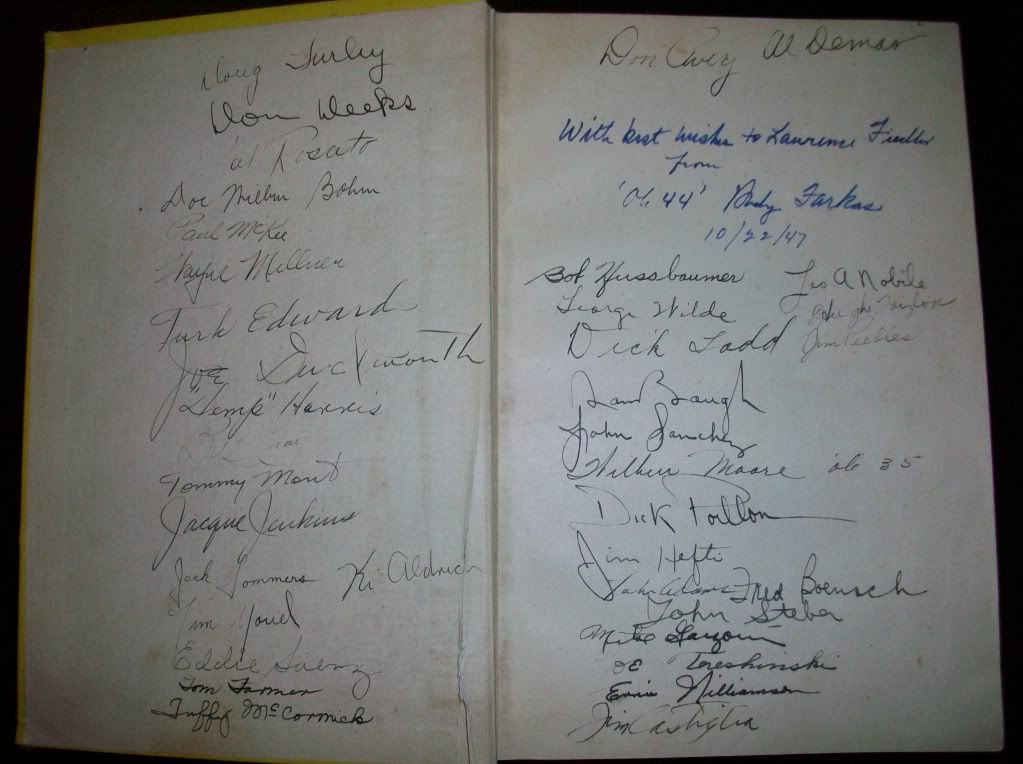 Doug Turley
Don Deeks
Al Rosato
Doc Wilbur Bohm
Paul McKee
Wayne Millner
Turk Edward
Joe Duckworth
"Hemp" Harris
Tommy Mont
Jacque Jenkins
Jack Sommers Ki Aldrich
Jim Youel
Eddie Saenz
Tom Farmer
Tuffy McCormick
Don Avery Al Demao
With best wishes to Lawrence
from
'Ole 44' Andy Farkas
10/22/47
Bob Nussbaumer Leo A Nobile
George Wilde Hugh Taylor
Dick Todd Jim Peebles
Sam Baugh
John Sanchez
Wilbur Moore ole 35
Dick Poillon
Jim Hefti
John Adams Fred Boensch
John Steber
Mike Garzoni
Joe Tereshinski
Ernie Williamson
Jim Castiglia